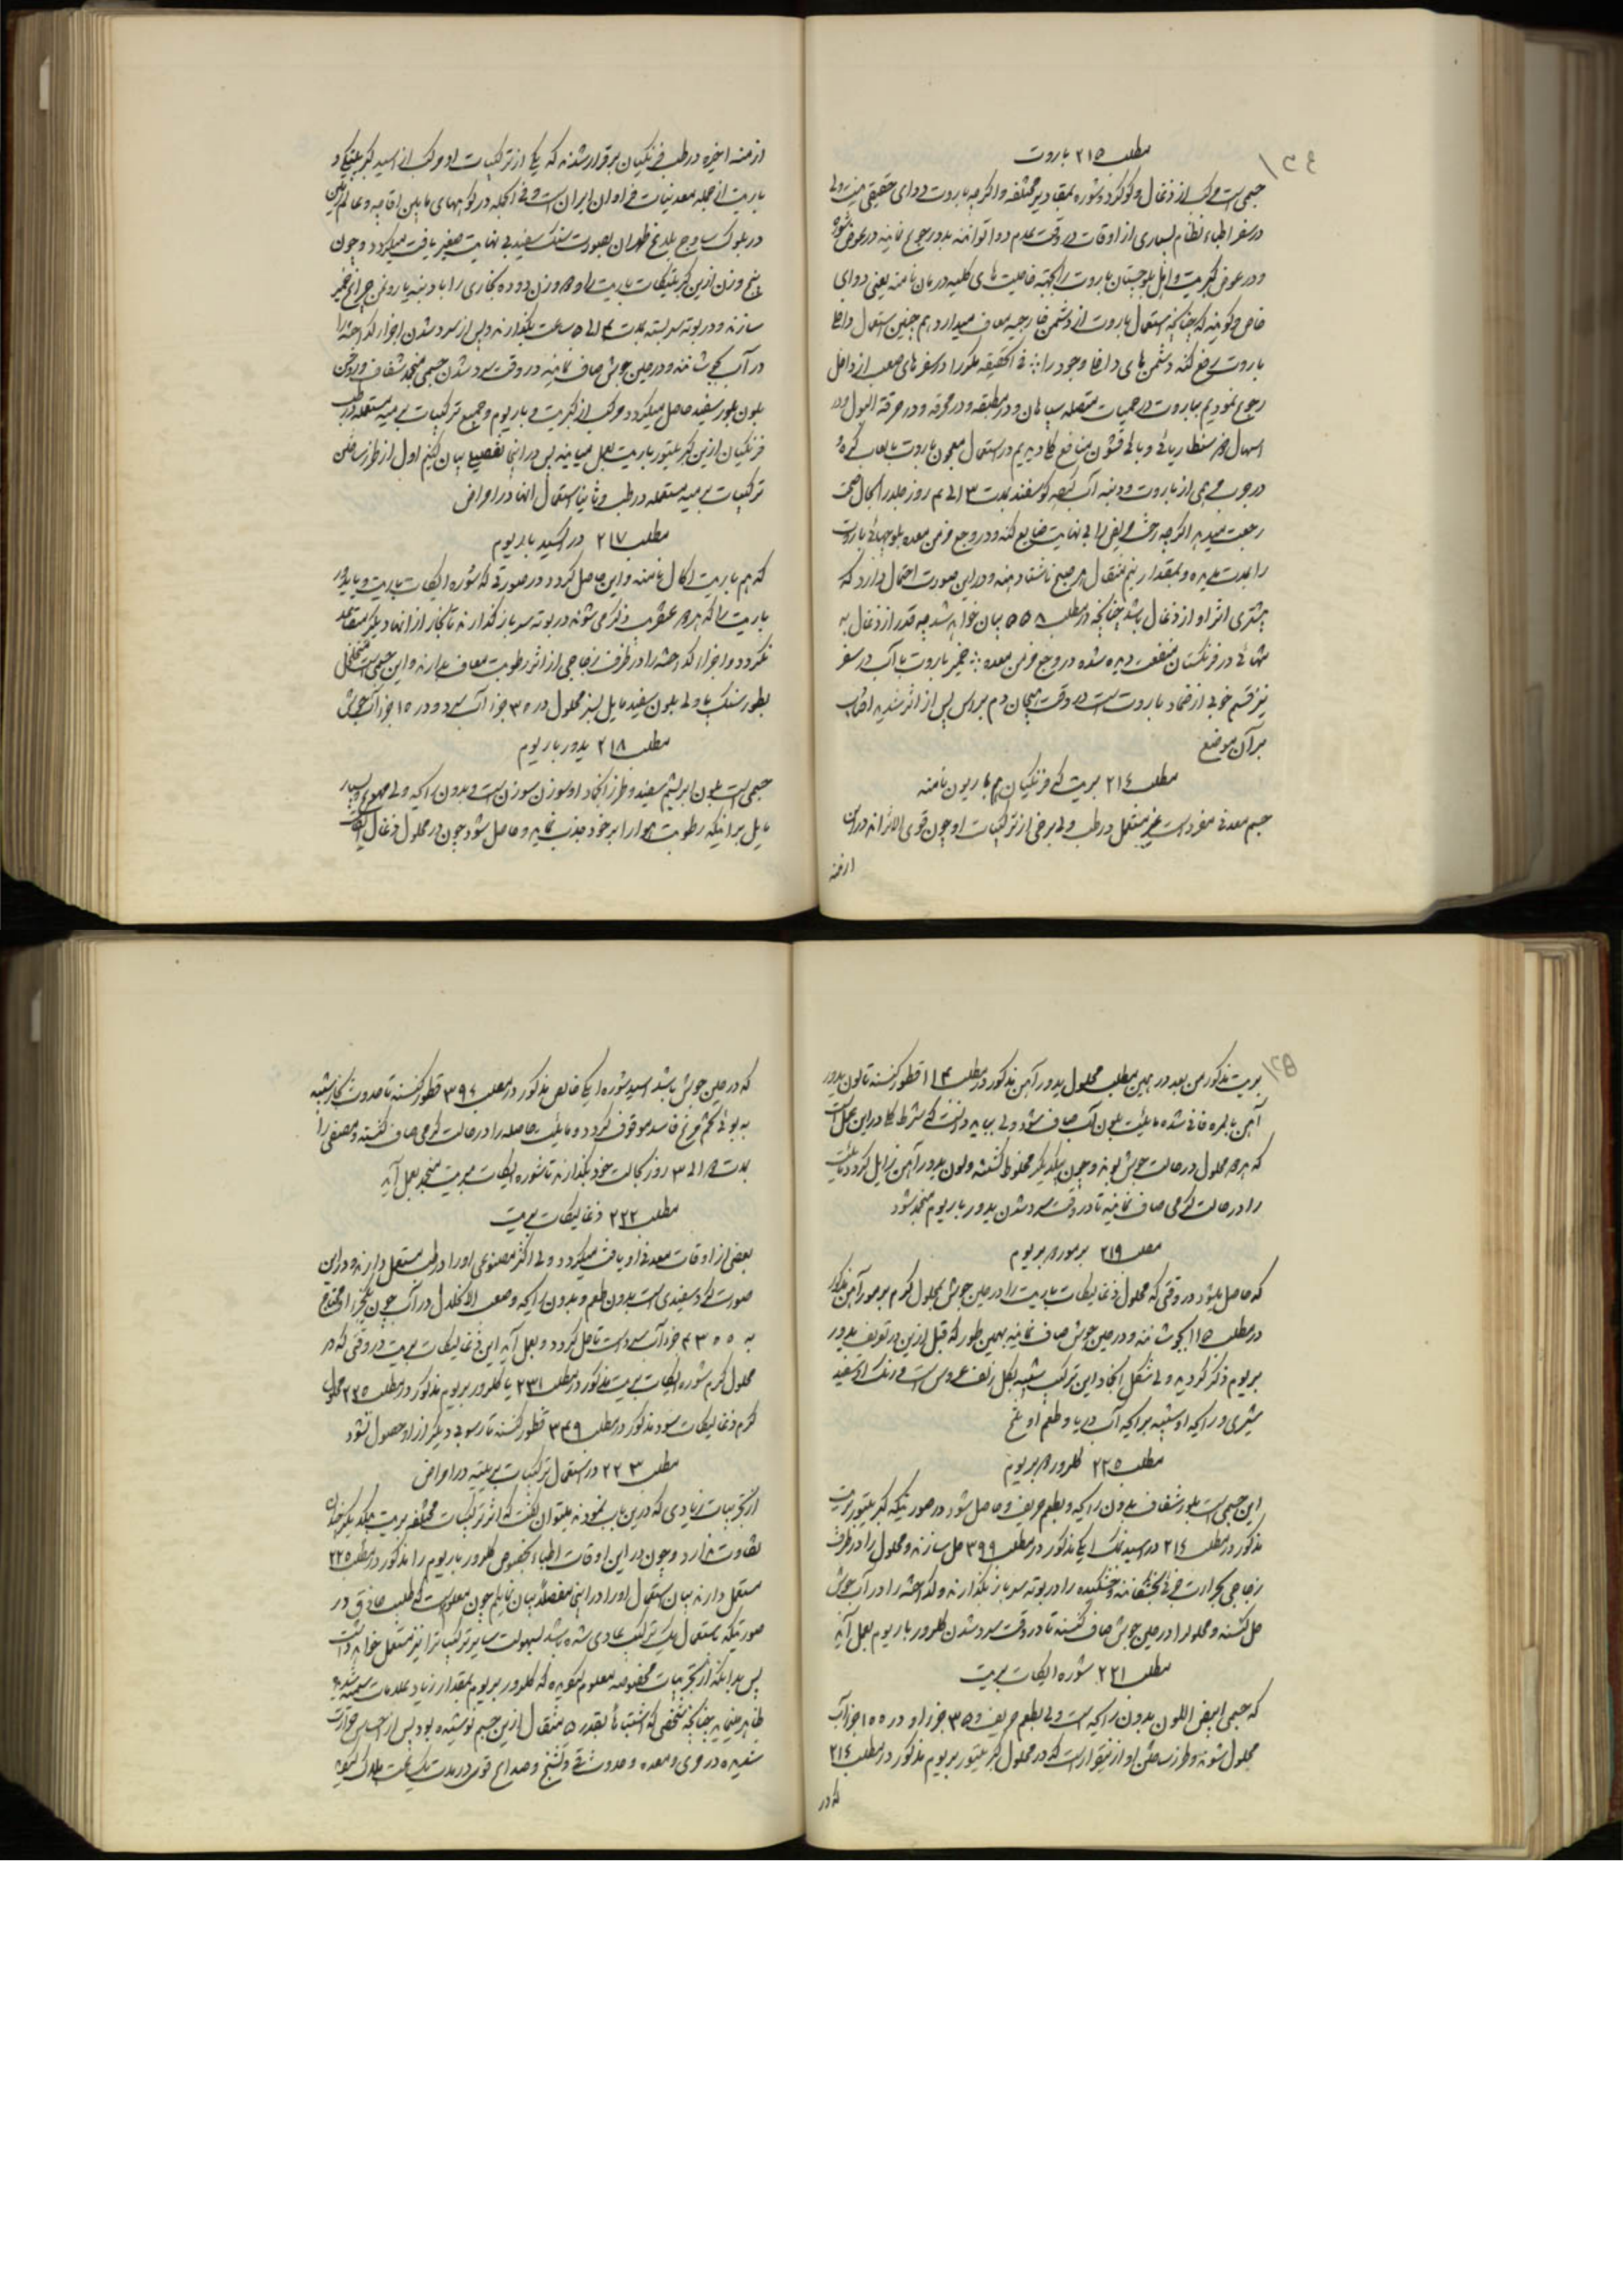 مطلب ۲۱۵ باروت
جسمی است مرکب از ذغال و کوکرد و شوره بمقادیر مختلفه و اکرچه باروت دوای حقیقی نیست ولی
در سفر اطباء نظام بسیاری از اوقات در وقت عدم دوا توانند بدو رجوع نمایند در عوض شوره
و در عوض کبریت و اهل بلوچستان باروت را بجهة خاصیت های کلیه درمان نامند یعنی دوای
خاص و کویند که چنانکه استعمال باروت از دشمن خارجیه معاف میدارد هم چنین استعمال داخل
باروت رفع کند دشمن های داخل وجود را فی الحقیقه مکررا در سفر های صعب از داخل
رجوع نمودیم بباروت در حمیات متصله سپاهان و در مطبقه و در محرقه و در حرقة البول و در
اسهال و منافع کلی دیدیم در استعمال معجون باروت با لعاب کرده
در جوب مرهمی از باروت و دنبه آب کوسفند بمدت ۳ الی ۴ روز جلد را بحال صحت
رجعت میدهد اکرچه رخت مریض را بی نهایت ضایع کند و در وجع مزمن معده بلوچها باروت
را بمدت مدیده و بمقدار نیم مثقال هر صبح ناشتا دهند و در این صورت احتمال دارد که
بیشتری اثر او از ذغال باشد چنانچه در مطلب ۵۵۸ بیان خواهد شد چه قدر از ذغال به
تنهائی در فرنکستان منفعت دیده شده در وجع مزمن معده خمیر باروت با آب در سفر
نیز قسم خوبی از ضماد باروت است در وقت هیجان دم براس پس از اثر شدید افتاب
بر آن موضع
مطلب ۲۱۶ بریت که فرنکیان باریون نامند
جسم معدنی مفرد است غیر مستعمل در طب ولی برخی از ترکیبات او چون قوی الاثراند در این
ازمنه
ازمنه اخیره در طب فرنکیان برقرار شدند که یکی از ترکیبات او مرکب از اسید کبریتیک و
باریت از جمله معدنیات فراوان ایران است و فی الجمله در کوههای مابین
در بلوک ساوج بلاغ طهران بصورت سنک سفید بی نهایت صغیر یافت میکردد و چون
پنج وزن از این کبریتیکات باریت را و وزن دوده نجاری را با دنبه یا روغن چراغ خمیر
سازند و در بوته سر بسته بمدت ۴ الی ۵ ساعت بکذارند و پس از سرد شدن اجزاء کداخته را
در آب بجوشانند و در حین جوش صاف نمایند در وقت سرد شدن جسمی منجمد شفاف
بلون بلور سفید حاصل میکردد مرکب از کبریت و باریوم و جمیع ترکیبات بریتیه مستعمله در طب
فرنکیان از این کبریتور باریت بعمل میایند پس در اینجا بتفصیل بیان کنیم اول از طرز ساختن
ترکیبات بریتیه مستعمله در طب و ثانیا استعمال انها در امراض
مطلب ۲۱۷ در اکسید باریوم
که هم باریت اکال نامند و این حاصل کردد در صورتی که شوره ایکات باریت و یا یدور
باریت را که هر دو عنقریب ذکر می شوند در بوته سر باز کذارند تا بخار از انها دیکر متصاعد
نکردد و اجزاء کداخته را در ظرف زجاجی از اثر رطوبت معاف بدارند و این جسمی است متخلخل
بطور سنک پا ولی بلون سفید مایل بسبز محلول در ۳۵ جزء آب سرد و در ۱۵ جزء آب جوش
مطلب ۲۱۸ یدور باریوم
جسمی است بلون ابریشم سفید و طرز انجماد او سوزن سوزن است و بدون رایحه ولی مهوع و بسیار
مایل بر اینکه رطوبت هوا را بر خود جذب نماید و حاصل شود چون در محلول ذغال ایکات
بریت مذکور من بعد در همین مطلب محلول یدور آهن مذکور در مطلب ۱۱۴ قطور کنند تا لون یدور
آهن بالمره فانی شده مایئیت بلون آب صاف شود ولی بباید دانست که شرط کلی در این عمل آنست
که هر دو محلول در حالت جوش بوند و چون بیکدیکر مخلوط کشته و لون یدور آهن زایل کردد مایئیت
را در حالت کرمی صاف نمایند تا در وقت سرد شدن یدور باریوم منجمد شود
مطلب ۲۱۹ برمور بریوم
که حاصل میشود در وقتی که محلول ذغالیکات باریت را در حین جوش بمحلول کرم برمور آهن مذکور
در مطلب ۱۱۵ بجوشانند و در حین جوش صاف نمایند بهمین طور که قبل از این در تعریف یدور
بریوم ذکر کردید ولی شکل انجماد این ترکیب شبیه بکل زلف عروس است و رنک او سفید
شیری و رایحه او شبیه برایحه آب دریا و طعم او تلخ
مطلب ۲۲۰ کلرور بریوم
این جسمی است بلور شفاف بدون رایحه و بطعم حریف و حاصل شود در صورتیکه کبریتور بریت
مذکور در مطلب ۲۱۶ در اسید نمک ایکی مذکور در مطلب ۳۹۹ حل سازند و محلول را در ظرف
زجاجی بحرارت خشکانند و خشکیده را در بوته سر باز بکذارند و کداخته را در آب جوش
حل کنند و محلول را در حین جوش صاف کنند تا در وقت سرد شدن کلرور باریوم بعمل آید
مطلب ۲۲۱ شوره ایکات بریت
که جسمی ابیض اللون بدون رایحه است ولی بطعم حریف و ۳۵ جزء او در ۱۰۰ جزء آب
محلول شوند و طرز ساختن او از اینقرار است که در محلول کبریتور بریوم مذکور در مطلب ۲۱۶
که در
که در حین جوش باشد اسید شوره ایکی خالص مذکور در مطلب ۳۹۴ قطور کنند تا حدوث بخار شبیه
به بوی تخم مرغ فاسد موقوف کردد و مایئیت حاصله را در حالت کرمی صاف کنند و مصفی را
بمدت ۲ الی ۳ روز بحالت خود بکذارند تا شوره ایکات بریت منجمد بعمل آید
مطلب ۲۲۲ ذغالیکات بریت
بعضی از اوقات معدنی او یافت میکردد ولی اکثر مصنوعی او را در طب مستعمل دارند و در این
صورت کرد سفیدی است بدون طعم و بدون رایحه و صعب الانحلال در آب چون یکجزء او محتاج
به ۴۳۰۰ جزء آب سرد است تا حل کردد و بعمل آید این ذغالیکات بریت در وقتی که در
محلول کرم شوره ایکات بریت مذکور در مطلب ۲۲۱ یا کلرور بریوم مذکور در مطلب ۲۲۰ محلول
کرم ذغالیکات سود مذکور در مطلب ۳۴۹ قطور کنند تا رسوبی دیکر از او حصول نشود
مطلب ۲۲۳ در استعمال ترکیبات بریتیه در امراض
از تجربیات زیادی که در این باب نمودند میتوان کفت که اثر ترکیبات مختلفه بریت بیکدیکر چندان
تفاوت ندارد و چون در این اوقات اطباء بخصوص کلرور باریوم را مذکور در مطلب ۲۲۰
مستعمل دارند بیان استعمال او را در اینجا مفصلاً بیان نمایم چون معلوم است که طبیب حاذق در
صورتیکه باستعمال یک ترکیب عادی شده باشد بسهولت سایر ترکیباترا نیز مستعمل خواهد داشت
پس بدانکه از تجربیات مخصوصه معلوم کردیده که کلرور بریوم بمقدار زیاد علامات سمیه شدیده
ظاهر مینماید چنانچه شخصی که اشتباهاً بقدر ۵ مثقال از این جسم نوشیده بود پس از احساس حرارت
شدیده در مری و معده و حدوث قی و تشنج و صداع قوی در مدت یک ساعت هلاک کردید